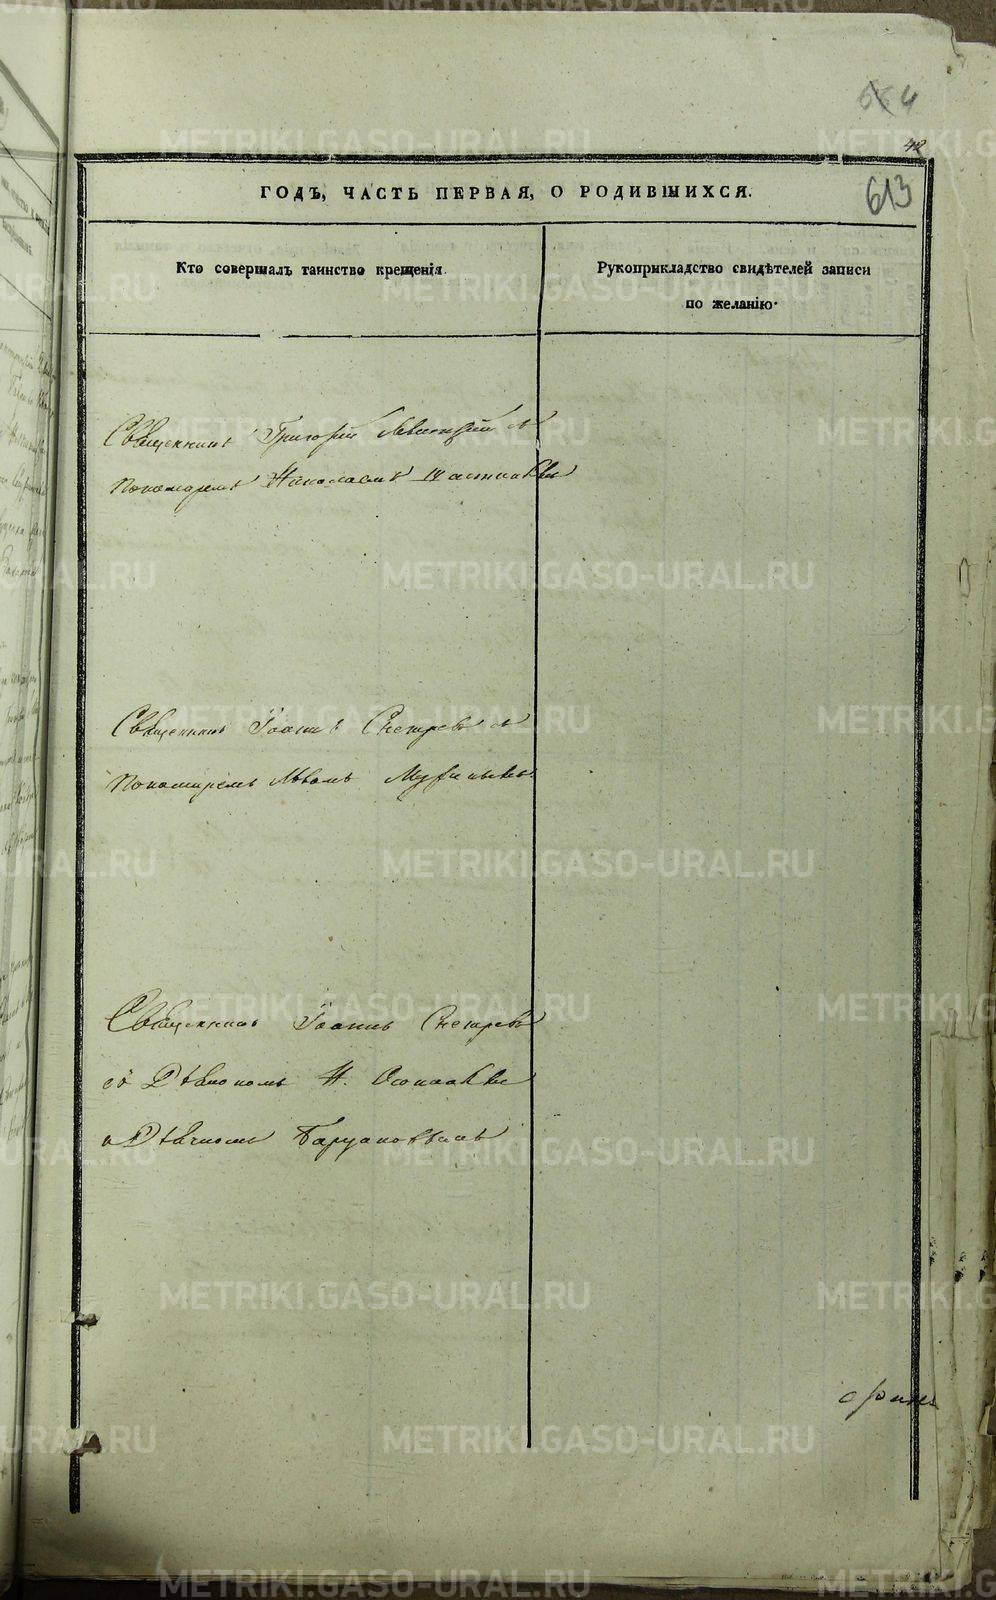 42
613
ГОДЪ, ЧАСТЬ ПЕРВАЯ, О РОДИВШИХСЯ.
Кто совершалъ таинство крещенія.
Рукоприкладство свидѣтелей записи
по желанію.
Священникъ Григорій Левитскій съ
пономаремъ Николаемъ
Священникъ Іоаннъ Снегиревъ съ
пономаремъ Львомъ
Священникъ Іоаннъ Снегиревъ
съ Діакономъ Н.
и Дьячкомъ
METRIKI.GASO-URAL.RU